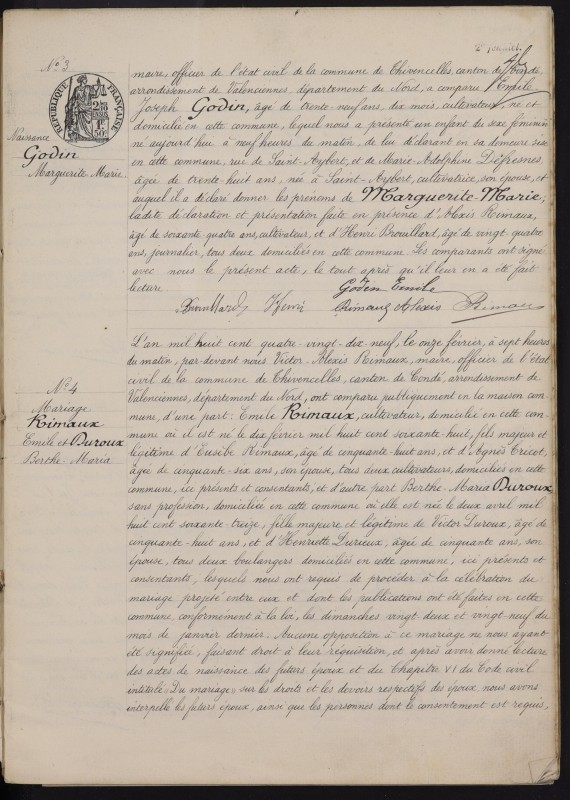 2e feuillet
No 3
maire, officier de l'état civil de la commune de Thivencelles, canton de Condé,
arrondissement de Valenciennes, département du Nord, a comparu Emile
Joseph Godin, âgé de trente-neuf ans, dix mois, cultivateur, né et
domicilié en cette commune, lequel nous a présenté un enfant du sexe féminin
né aujourd'hui à neuf heures du matin, de lui déclarant en sa demeure sise
en cette commune, rue de Saint-Aybert, et de Marie-Adolphine Défresnes
âgée de trente huit ans, née à Saint-Aybert, cultivatrice, son épouse, et
auquel il a déclaré donner les prénoms de Marguerite-Marie;
ladite déclaration et présentation faite en présence d'Alexis Rimaux,
âgé de soixante-quatre ans, cultivateur, et d'Henri Brouillard, âgé de vingt-quatre
ans, journalier, tous deux domiciliés en cette commune. Les comparants ont signé
avec nous le présent acte, le tout après qu'il leur en a été fait
lecture
RÉPUBLIQUE FRANÇAISE
Naissance
Godin
Marguerite Marie
Godin Emile
Brouillard Henri Rimaux Alexis Rimaux
No 4
Mariage
Rimaux
Emile et Duroux
Berthe-Maria
L'an mil huit cent quatre-vingt-dix-neuf, le onze février, à sept heures
du matin, par-devant nous Victor-Alexis Rimaux, maire, officier de l'état
civil de la commune de Thivencelles, canton de Condé, arrondissement de
Valenciennes, département du Nord, ont comparu publiquement en la maison com-
mune, d'une part: Emile Rimaux, cultivateur, domicilié en cette com-
mune où il est né le dix février mil huit cent soixante-huit, fils majeur et
légitime d'Eusèbe Rimaux, âgé de cinquante-huit ans, et d'Agnès Tricot,
âgée de cinquante-six ans, son épouse, tous deux cultivateurs, domiciliés en cette
commune, ici présents et consentants, et d'autre part Berthe-Maria Duroux
sans profession, domiciliée en cette commune où elle est née le deux avril mil
huit cent soixante-treize, fille majeure et légitime de Victor Duroux, âgé de
cinquante-huit ans et d'Henriette Durieux, âgée de cinquante ans, son
épouse, tous deux boulangers domiciliés en cette commune, ici présents et
consentants, lesquels nous ont requis de procéder à la célébration du
mariage projeté entre eux et dont les publications ont été faites en cette
commune conformément à la loi, les dimanches vingt-deux et vingt-neuf du
mois de janvier dernier. Aucune opposition à ce mariage ne nous ayant
été signifiée, faisant droit à leur réquisition, et après avoir donné lecture
des actes de naissance des futurs époux et du Chapitre VI du Code civil
intitulé "Du mariage" sur les droits et les devoirs respectifs des époux, nous avons
interpellé les futurs époux, ainsi que les personnes dont le consentement est requis,